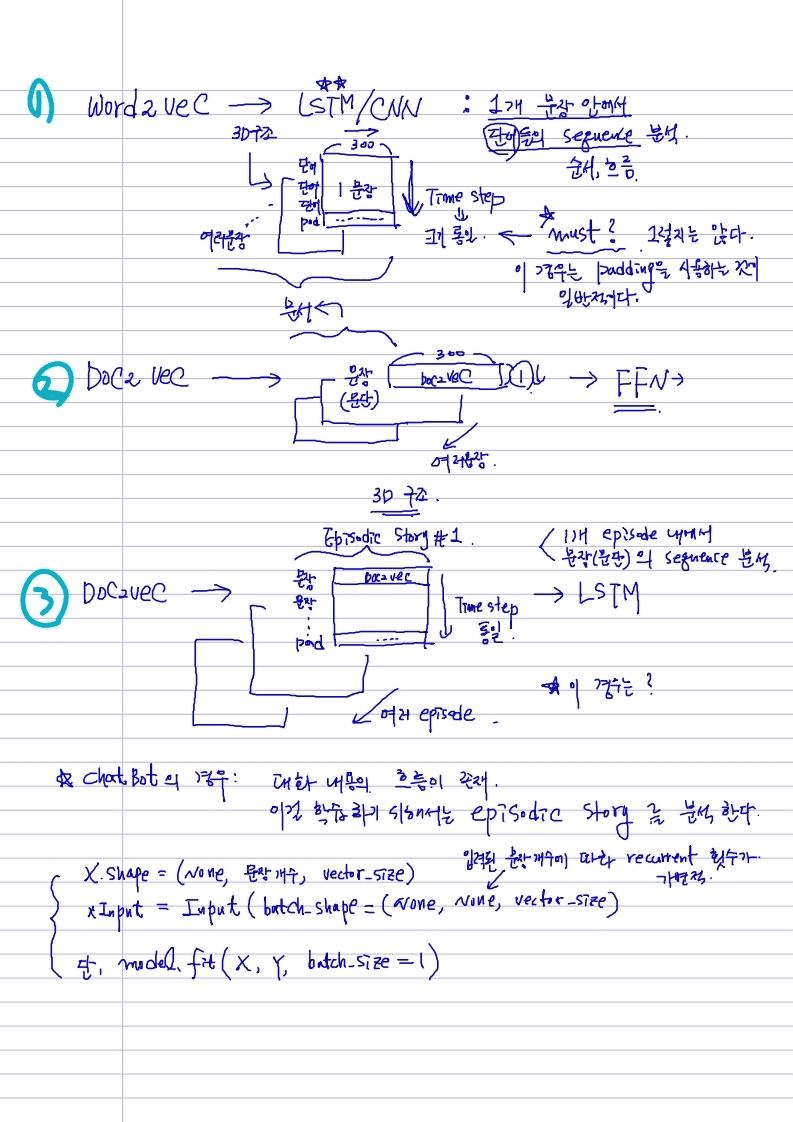 1) Word2Vec → LSTM/CNN : 1개 문장 안에서
단어들의 sequence 분석.
순서, 흐름.
3D구조
300
단어
단어
단어
pad
1 문장
여러문장
Time step
크기 통일. ← must? 그렇지는 않다.
이 경우는 padding을 사용하는 것이
일반적이다.
문서
2 Doc2Vec → 문장
(문단)
300
Doc2Vec
1
→ FFN →
여러문장.
3D 구조.
Episodic Story #1.
1개 episode 내에서
문장(문단)의 sequence 분석.
3 Doc2Vec → 문장
문장
pad
Doc2Vec
Time step
통일!
→ LSTM
☆ 이 경우는?
여러 episode.
☆ ChatBot의 경우: 대화 내용의 흐름이 존재.
이걸 학습하기 위해서는 episodic story를 분석한다.
입력된 문장개수에 따라 recurrent 횟수가
가변적.
X.shape = (None, 문장개수, vector_size)
xInput = Input(batch_shape=(None, None, vector_size)
단, model.fit(X, Y, batch_size=1)